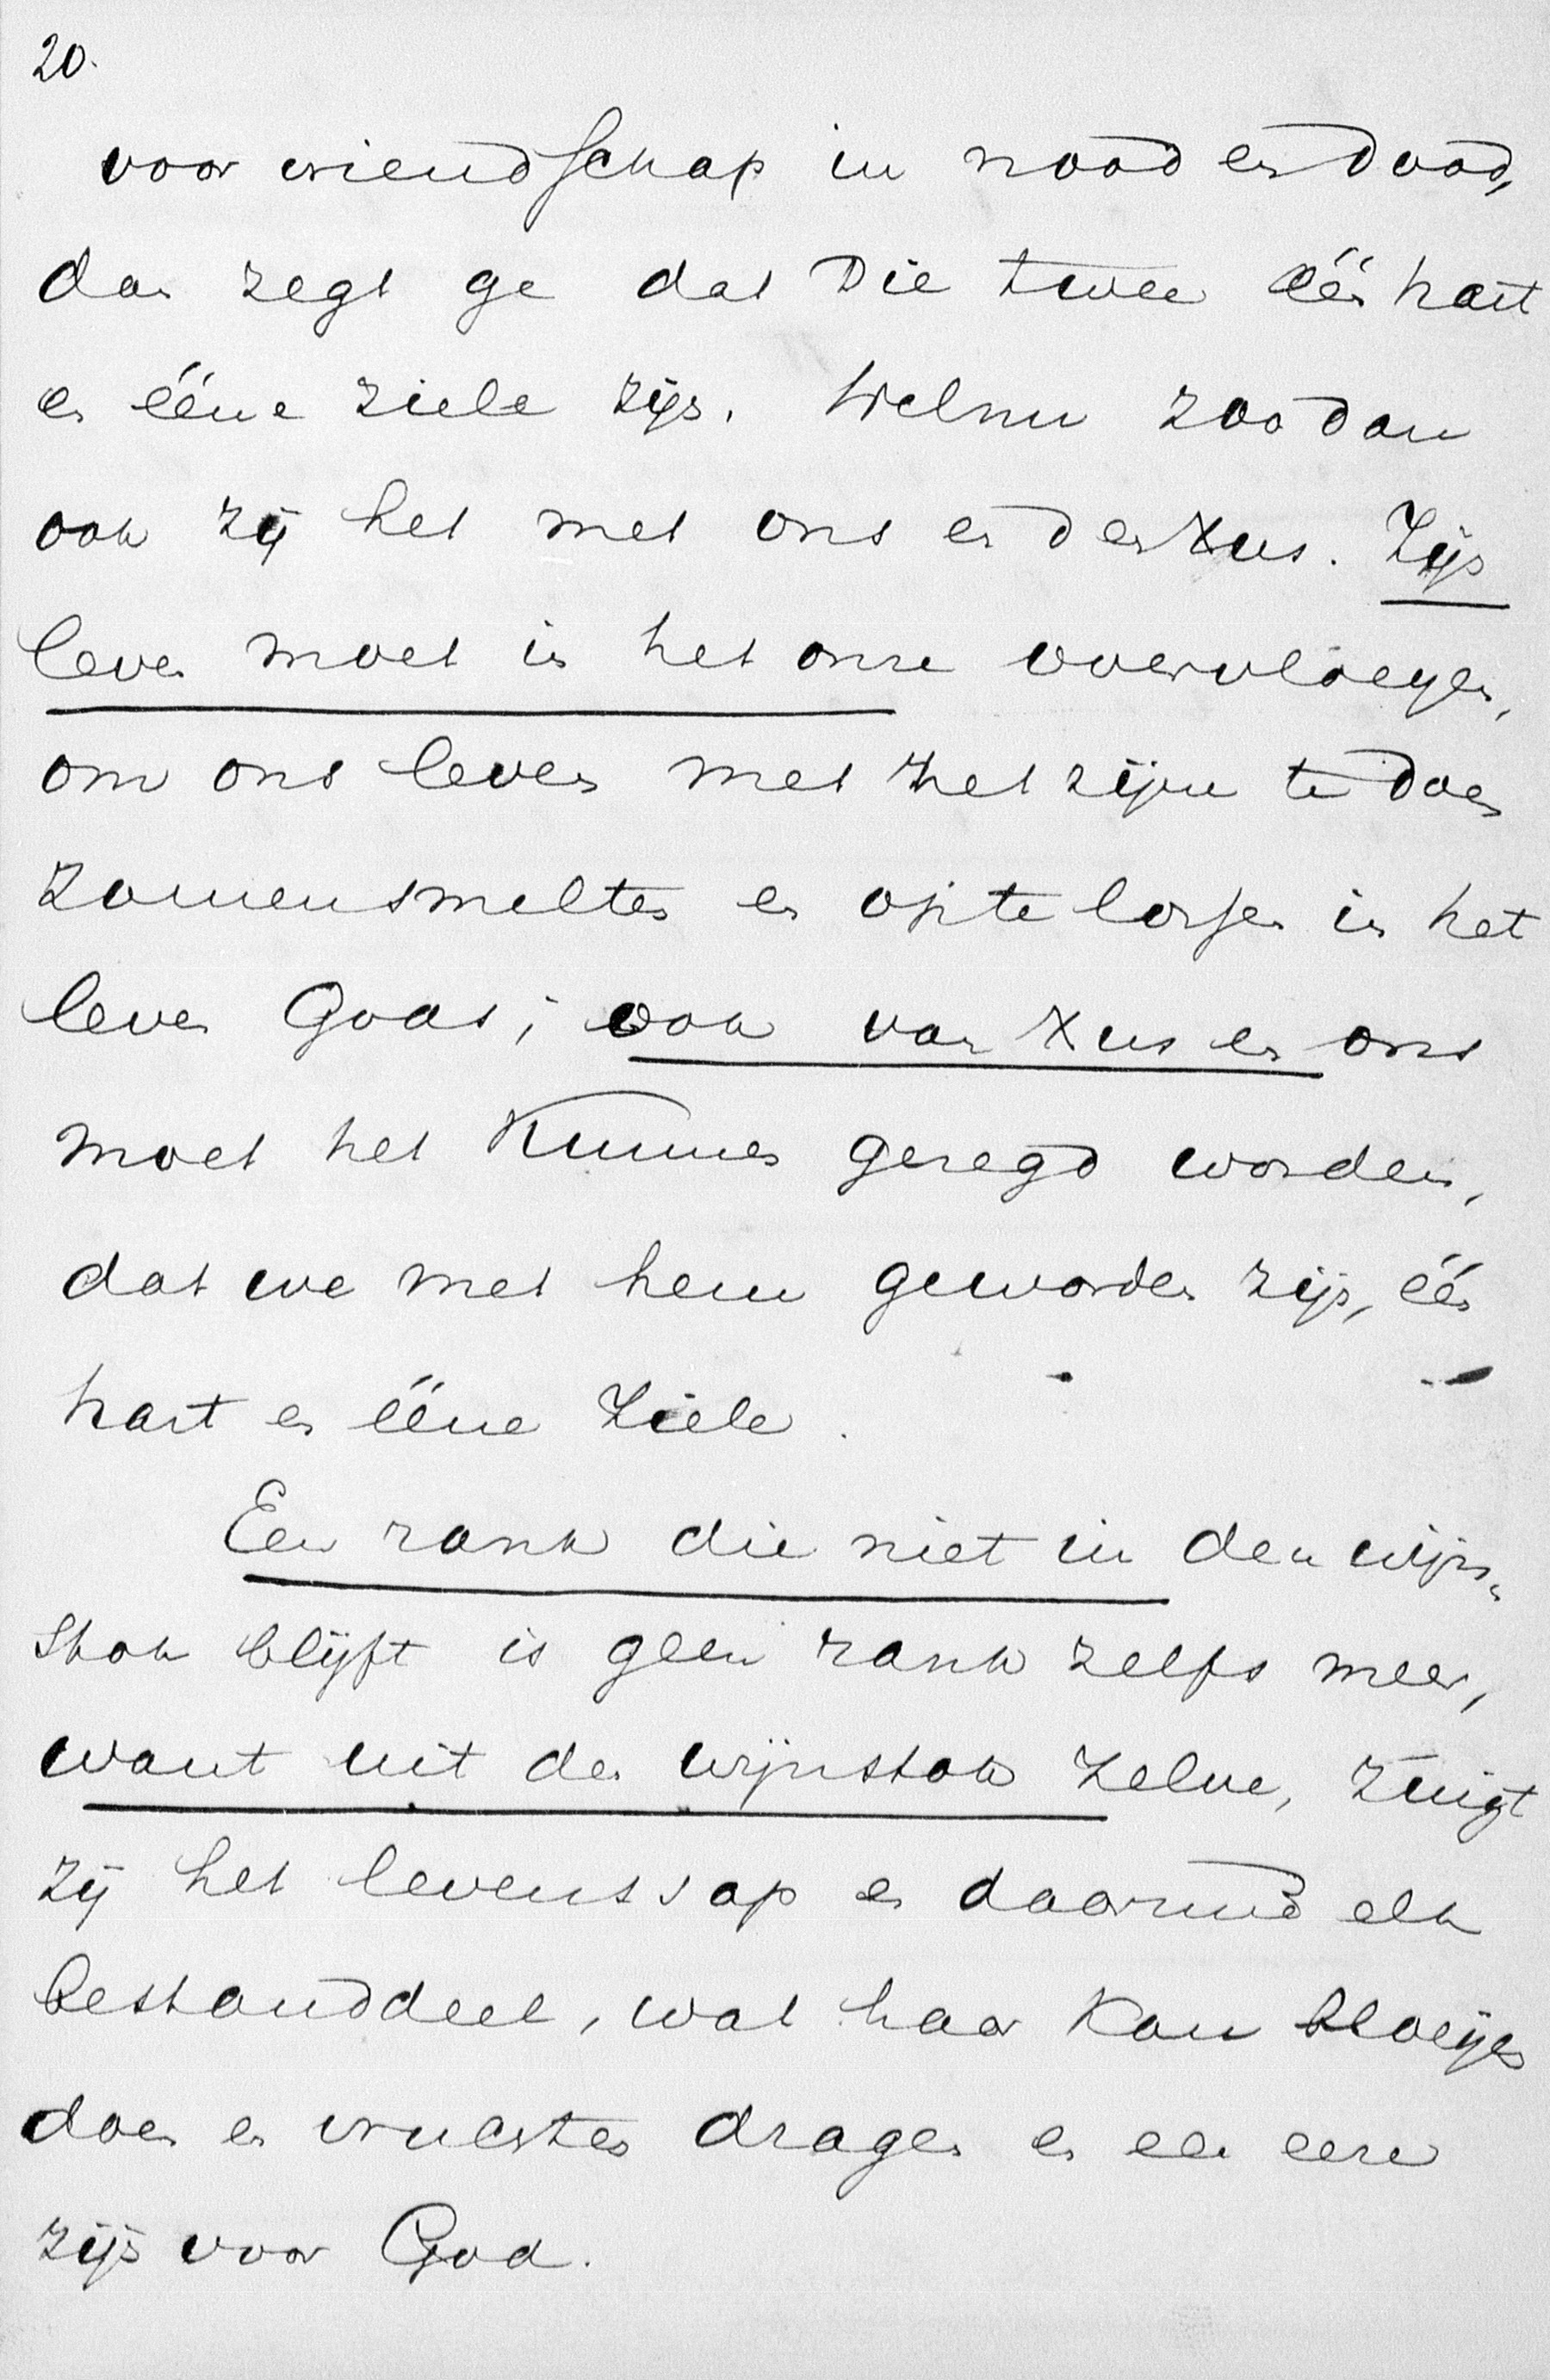 20.
voor vriendschap in nood en dood,
dan zegt ge dat Die twee één hart
en ééne ziele zijn. Welnu zoo dan
ook zij het met ons en den Xus. Zijn
leven moet in het onze overvloeyen,
om ons leven met het zijne te doen
zamensmelten en op te lossen in het
leven Gods; ook van Xus en ons
moet het Kunnen gezegd worden,
dat we met hem geworden zijn, één
hart en ééne Ziele.
Een rank die niet in den wijn„
stok blijft is geen rank zelfs meer,
want uit den wijnstok zelve, zuigt
zij het levenssap en daarmeê elk
bestanddeel, wat haar Kan bloeijen
doen en vruchten dragen en een eere
zijn voor God.